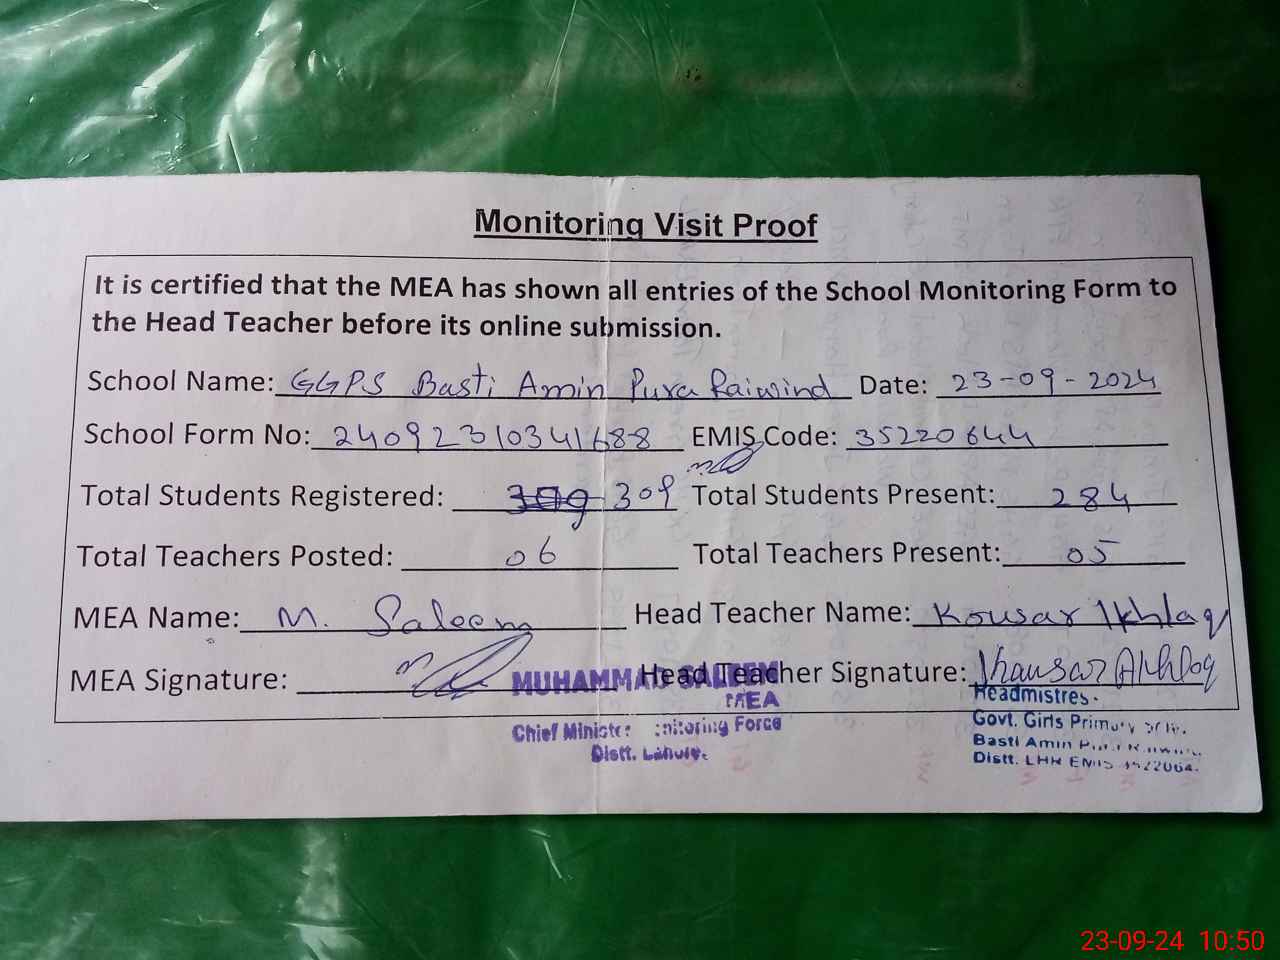 Monitoring Visit Proof
It is certified that the MEA has shown all entries of the School Monitoring Form to
the Head Teacher before its online submission.
School Name: GGPS Basti Amin Pura Raiwind Date: 23-09-2024
School Form No: 24092310341688 EMIS Code: 35220644
Total Students Registered: 309 Total Students Present: 284
Total Teachers Posted: 06 Total Teachers Present: 05
MEA Name: M. Saleem Head Teacher Name: Kousar Ikhlaq
MEA Signature: Head Teacher Signature:
MUHAMMAD SALEEM
MEA
Chief Minister Monitoring Force
Distt. Lahore.
Headmistres.
Govt. Girls Primary
Basti Amin
Distt. LHR EMIS
23-09-24 10:50